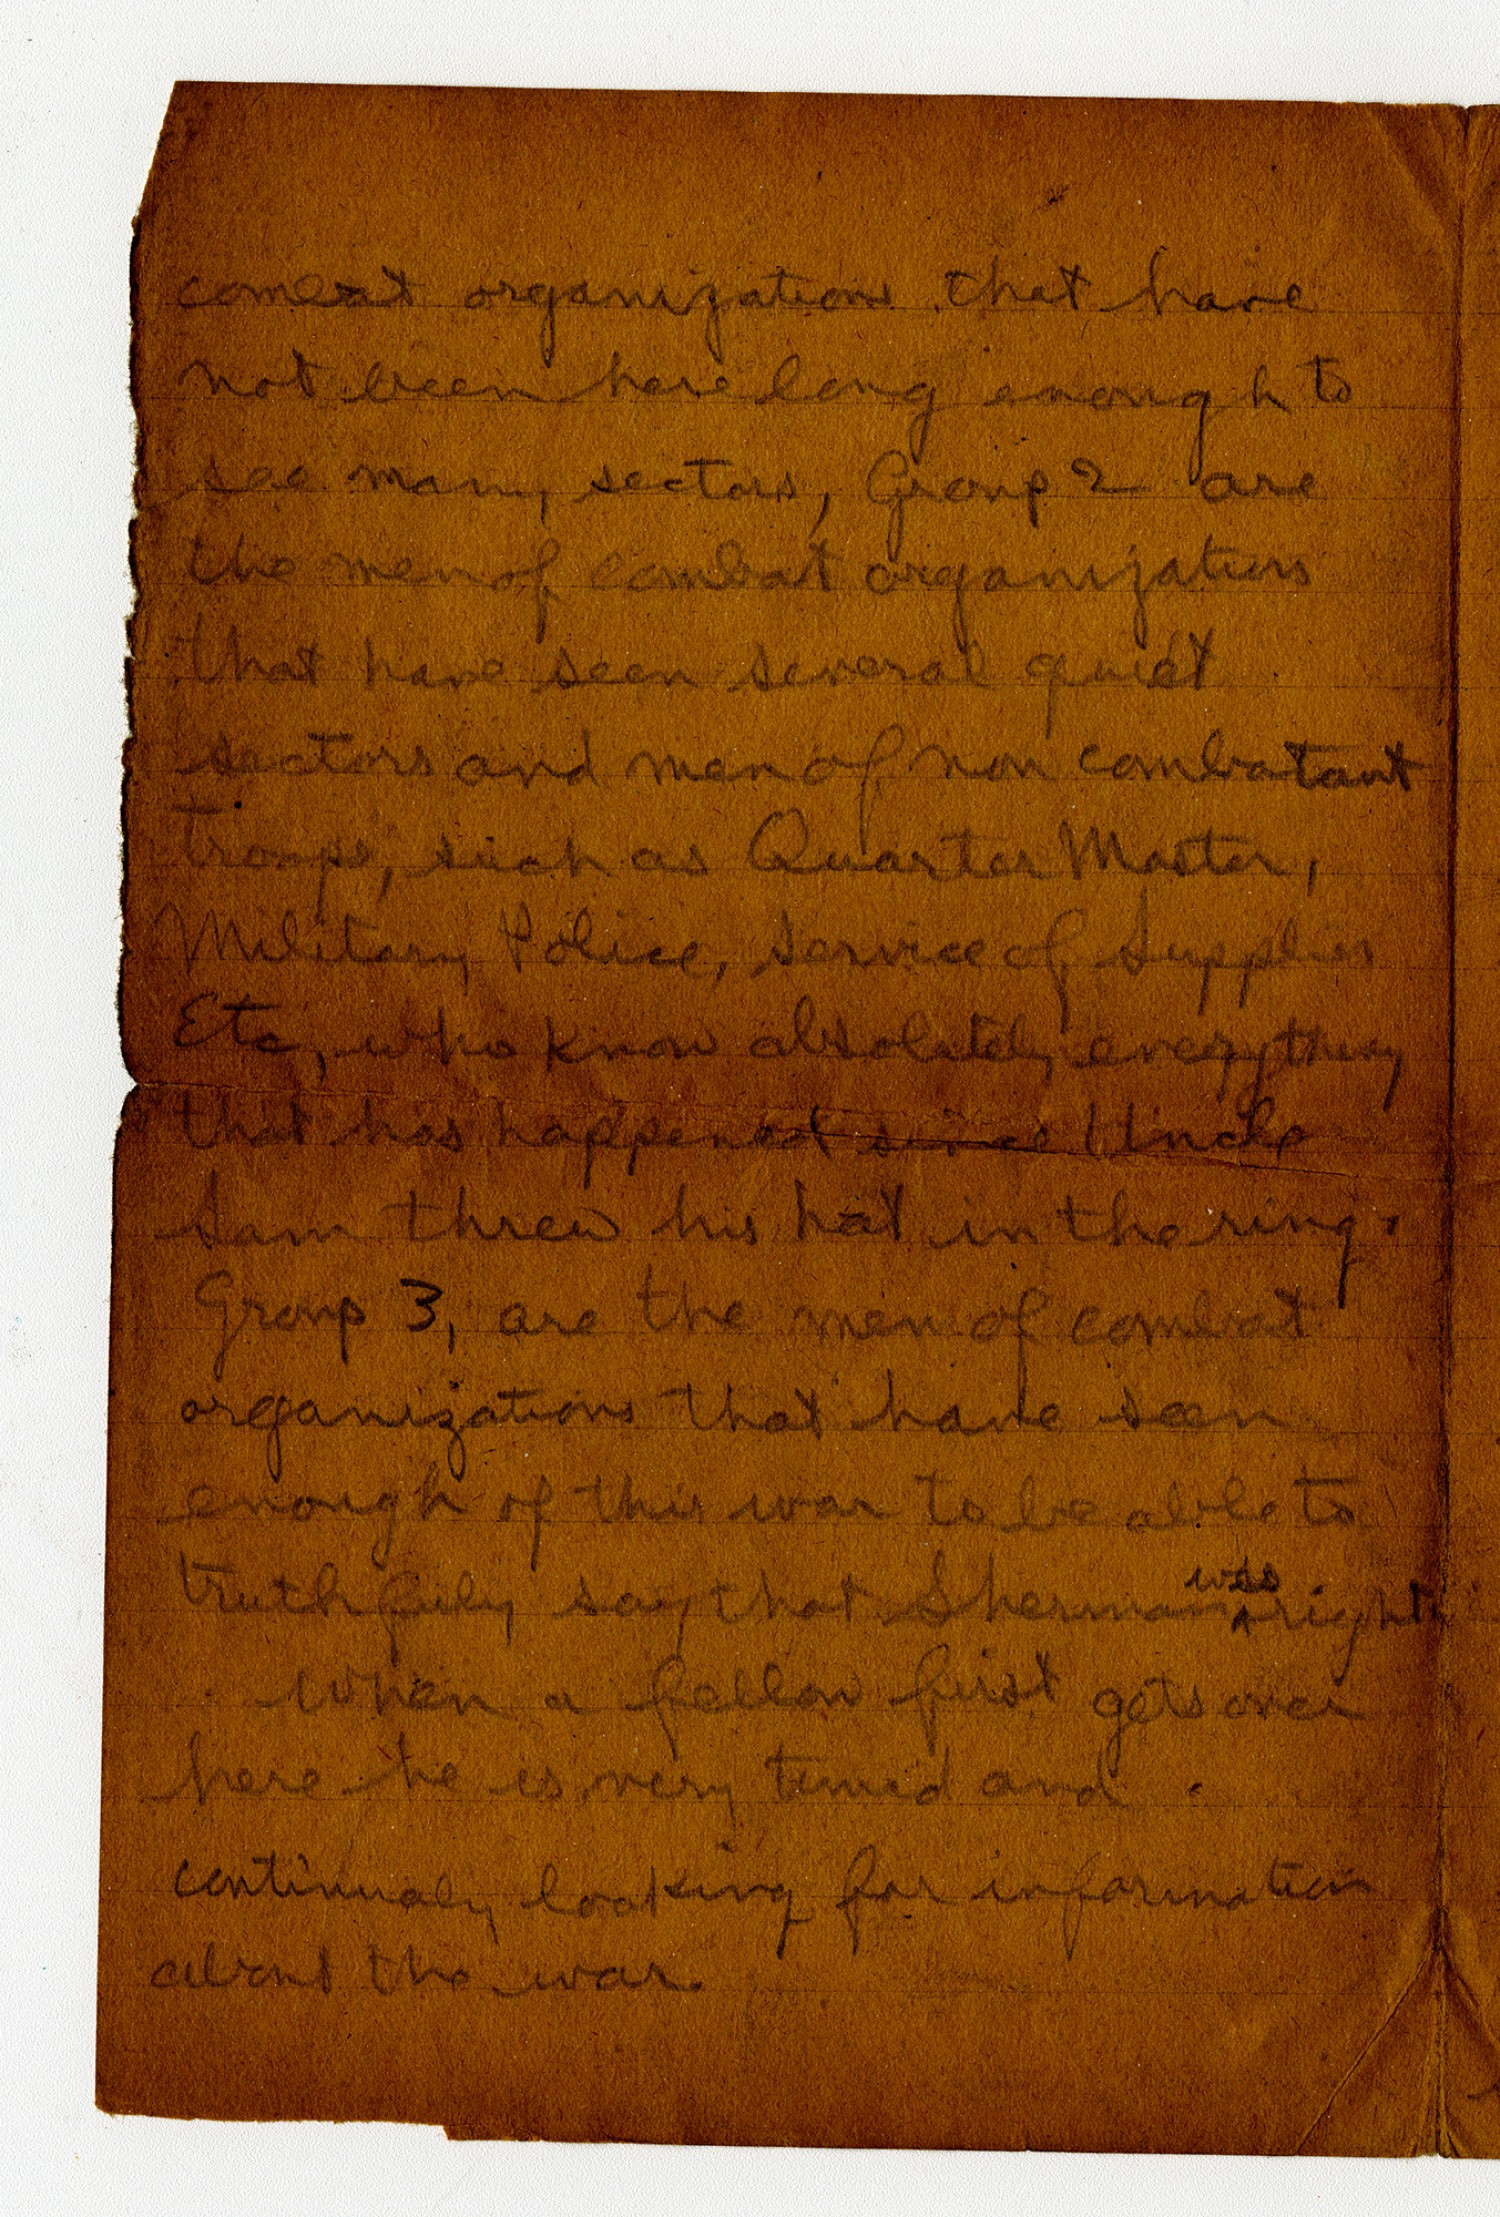 combat organizations that have
not been here long enough to
see many sectors, Group 2 are
the men of combat organizations
that have seen several quiet
sectors and men of non combatant
troops, such as Quarter Master,
Military Police, Service of Supplies
Etc, who know absolutely everything
that has happened since Uncle
Sam threw his hat in the ring.
Group 3, are the men of combat
organizations that have seen
enough of this war to be able to
truthfuly say that Sherman was right.
When a fellow first gets over
here he is very timid and
continualy looking for information
about the war.